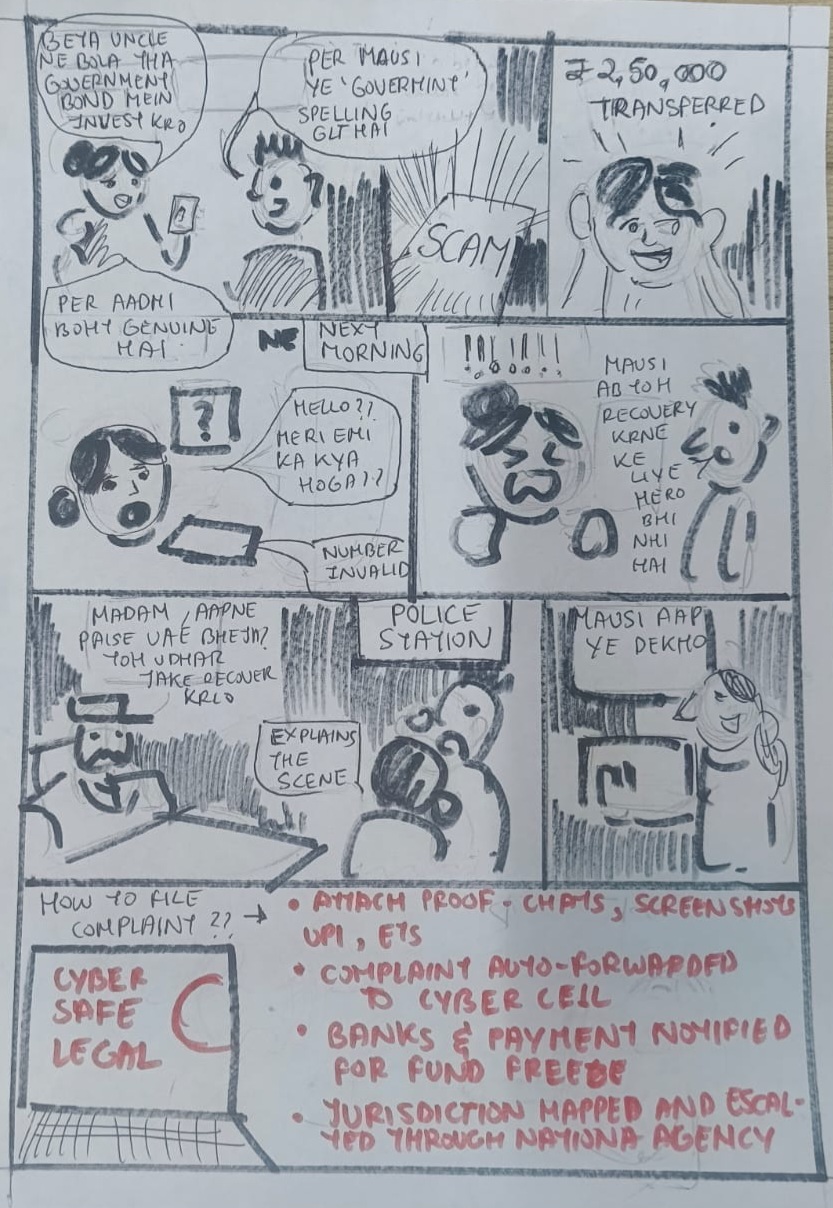 BETA UNCLE
NE BOLA THA
GOVERNMENT
BOND MEIN
INVEST KRO
PER MAUSI
YE 'GOVERMINT'
SPELLING
GLT HAI
SCAM
₹ 2,50,000
TRANSFERRED
PER AADMI
BOHT GENUINE
HAI
NE
NEXT
MORNING
?
HELLO??
MERI EMI
KA KYA
HOGA??
NUMBER
INVALID
!!!!!!!
MAUSI
AB TOH
RECOVERY
KRNE
KE
LIYE
HERO
BHI
NHI
HAI
MADAM, AAPNE
PAISE UAE BHEJA?
TOH UDHAR
JAKE RECOVER
KRLO
POLICE
STATION
EXPLAINS
THE
SCENE
MAUSI AAP
YE DEKHO
HOW TO FILE
COMPLAINT ?? →
CYBER
SAFE
LEGAL
• ATTACH PROOF - CHATS, SCREENSHOTS
UPI, ETS
• COMPLAINT AUTO-FORWARDED
TO CYBER CELL
• BANKS & PAYMENT NOTIFIED
FOR FUND FREEZE
• JURISDICTION MAPPED AND ESCAL-
TED THROUGH NATIONA AGENCY